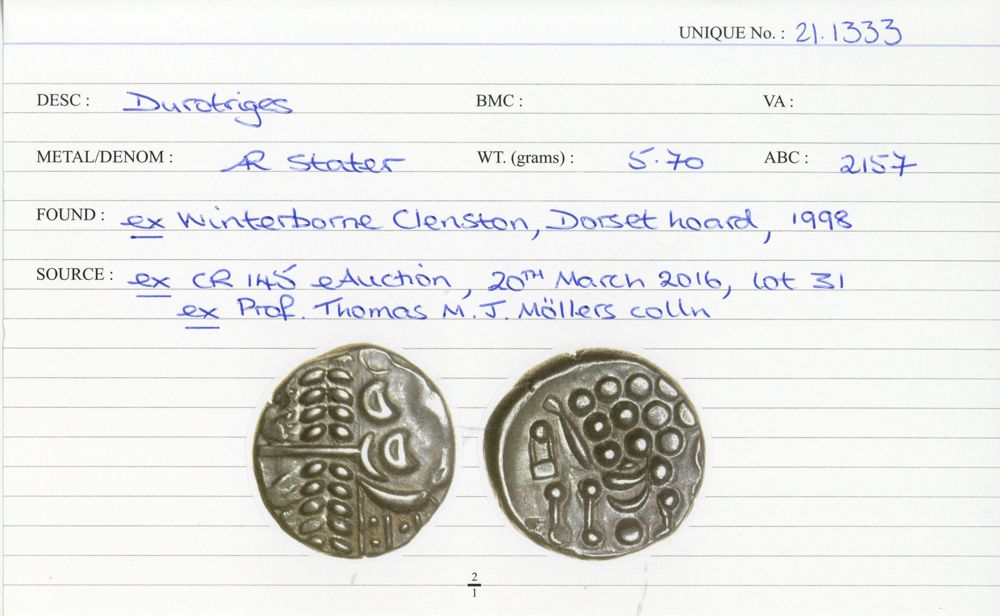 UNIQUE No. : 21.1333
DESC : Durotriges BMC : VA :
METAL/DENOM : AR Stater WT. (grams) : 5.70 ABC : 2157
FOUND : ex Winterborne Clenston, Dorset hoard, 1998
SOURCE : ex CR 145 eAuction, 20TH March 2016, lot 31
ex Prof. Thomas M. J. Möllers colln
2
1